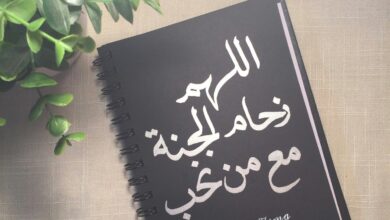 اللهم
زحام الجنة
مع من نحب